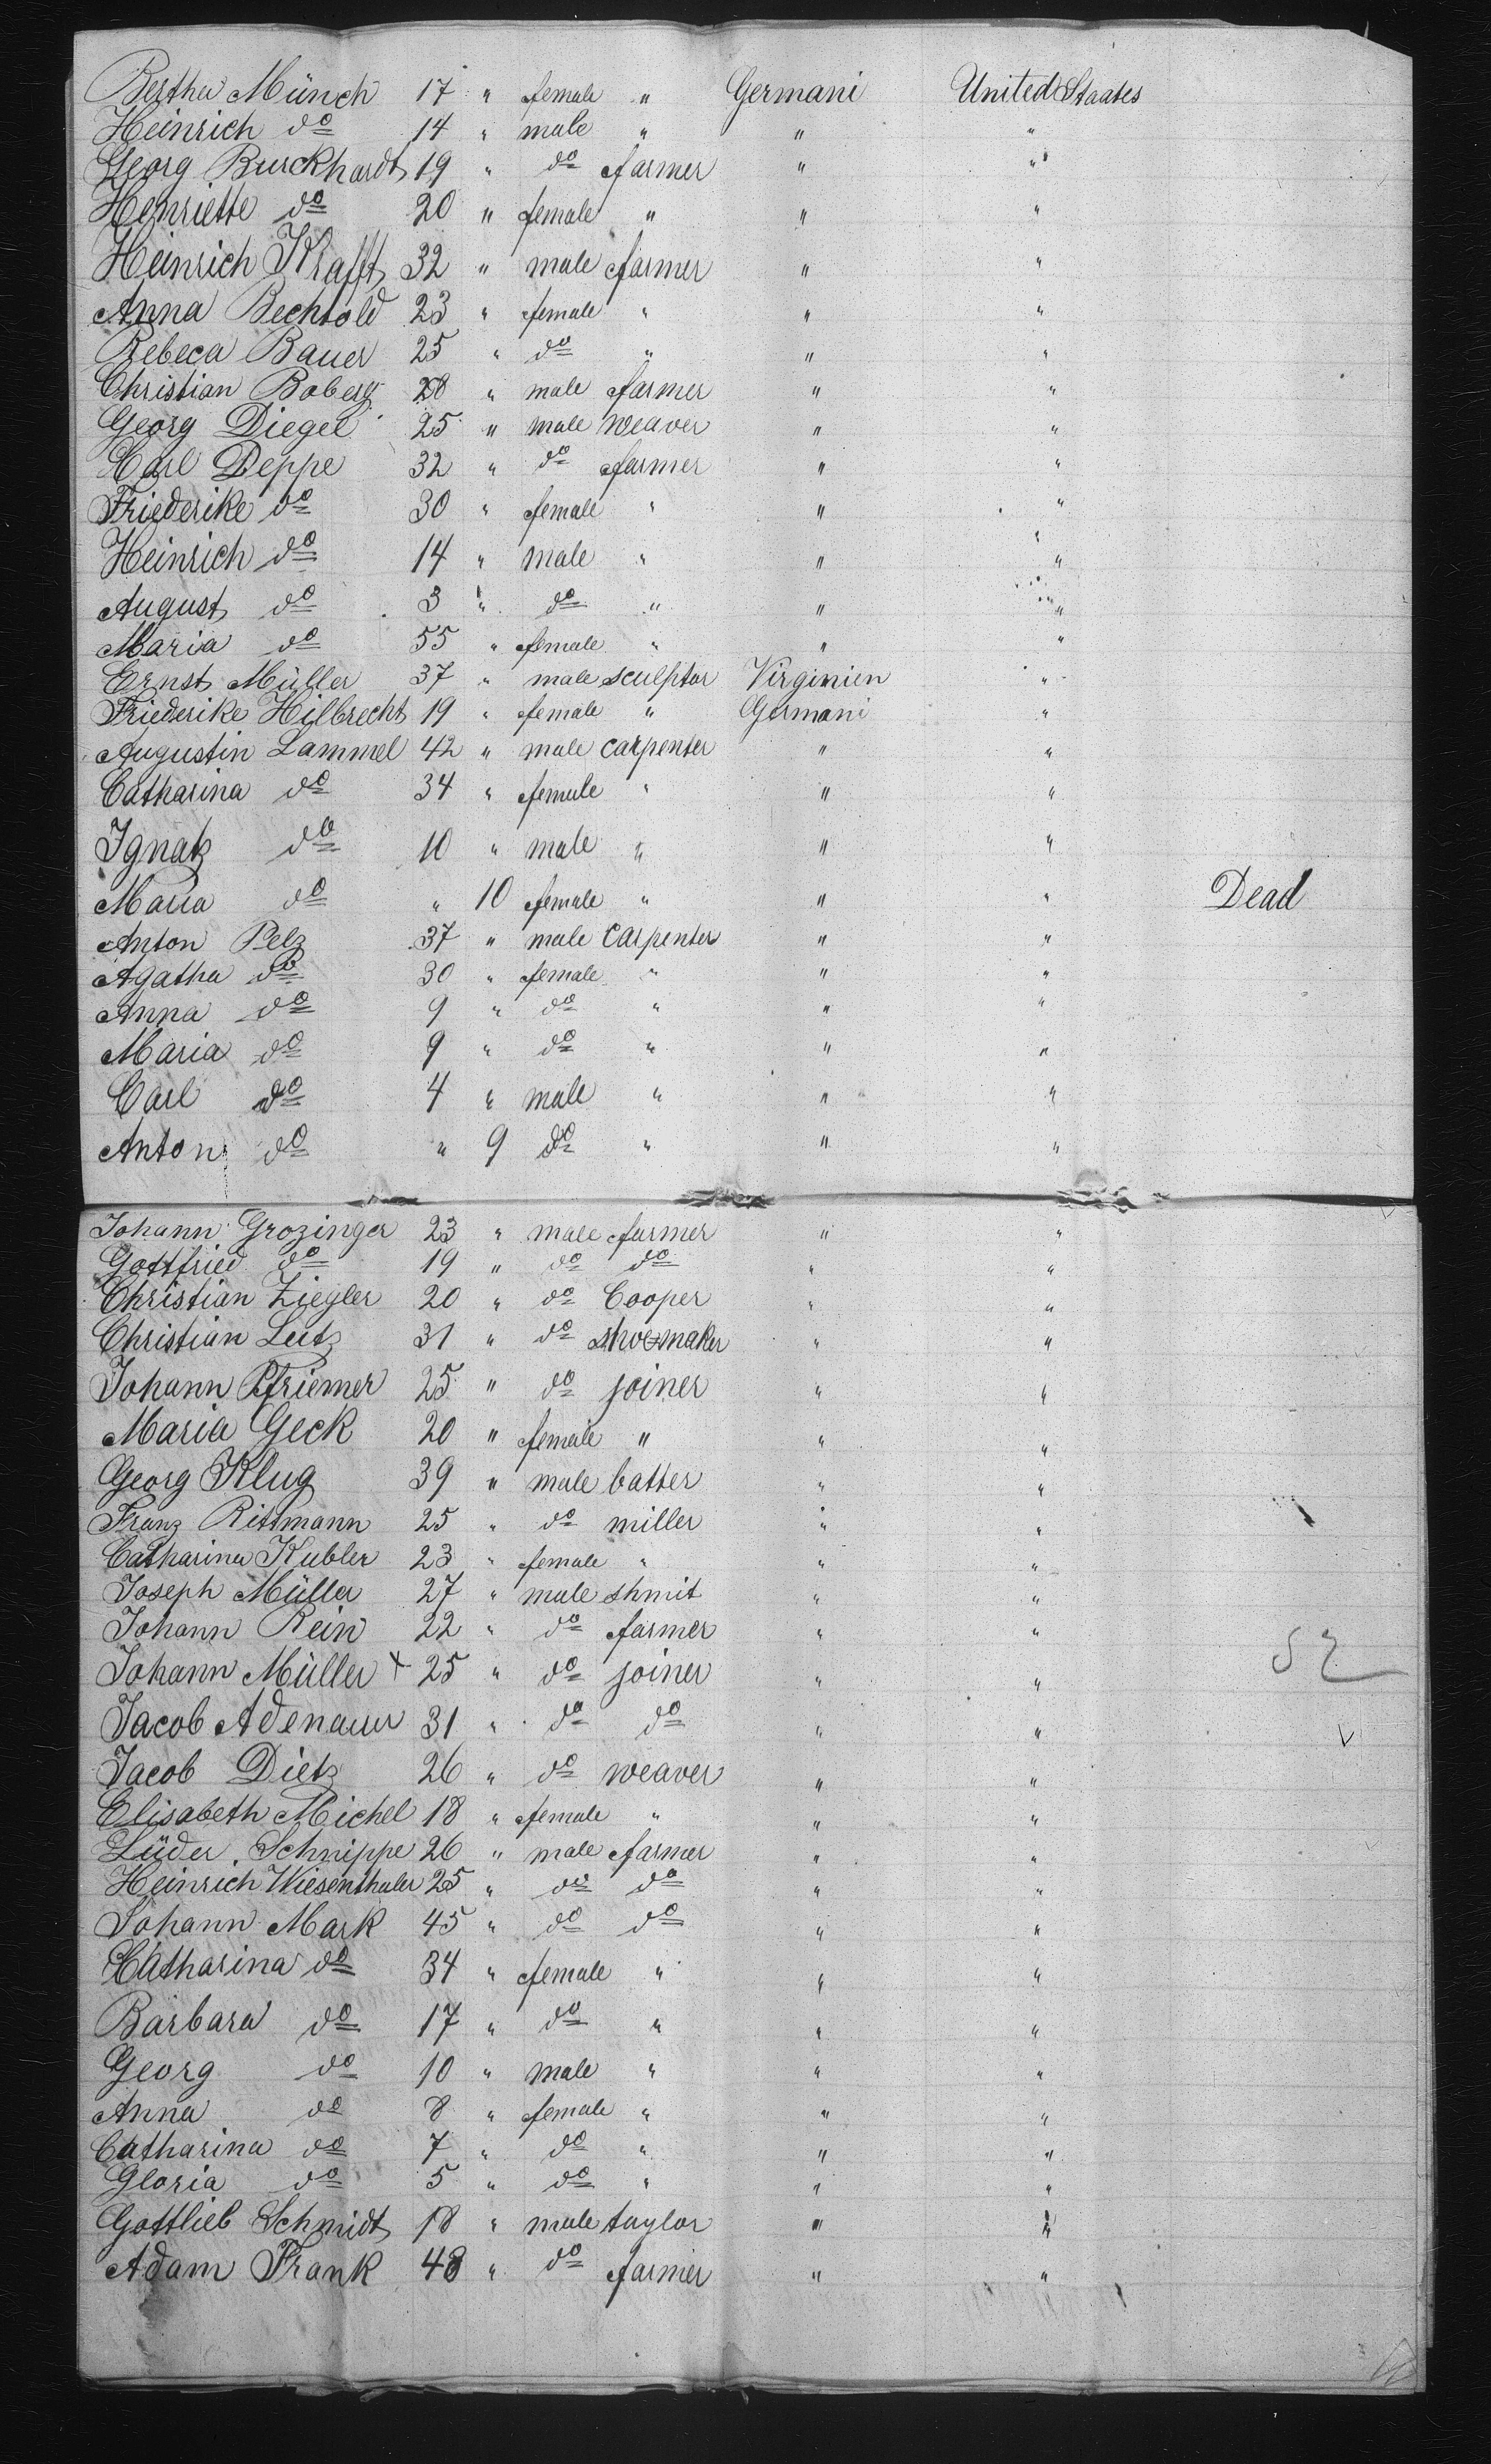 Bertha Münch 17 " female " Germani United Staates
Heinrich do 14 " male " " "
Georg Burckhardt 19 " do farmer " "
Henriette do 20 " female " " "
Heinrich Krafft 32 " male farmer " "
Anna Bechtold 23 " female " " "
Rebeca Bauer 25 " do " " "
Christian Boberg 28 " male farmer " "
Georg Diegel 25 " male weaver " "
Carl Deppe 32 " do farmer " "
Friederike do 30 " female " " "
Heinrich do 14 " male " " "
August do 3 " do " " "
Maria do 55 " female " " "
Ernst Müller 37 " male sculptor Virginien "
Friederike Hilbrecht 19 " female " Germani "
Augustin Lammel 42 " male carpenter " "
Catharina do 34 " female " " "
Ignatz do 10 " male " " "
Maria do " 10 female " " " Dead
Anton Pelz 37 " male carpenter " "
Agatha do 30 " female " " "
Anna do 9 " do " " "
Maria do 9 " do " " "
Carl do 4 " male " " "
Anton do " 9 do " " "
Johann Grozinger 23 " male farmer " "
Gottfried do 19 " do do " "
Christian Ziegler 20 " do Cooper " "
Christian Lutz 31 " do shoemaker " "
Johann Pfriemer 25 " do joiner " "
Maria Geck 20 " female " " "
Georg Klug 39 " male batter " "
Franz Rittmann 25 " do miller " "
Catharina Kubler 23 " female " " "
Joseph Müller 27 " male shmit " "
Johann Rein 22 " do farmer " "
Johann Müller x 25 " do joiner " "
Jacob Adenauer 31 " do do " "
Jacob Dietz 26 " do weaver " "
Elisabeth Michel 18 " female " " "
Lüder Schnippe 26 " male farmer " "
Heinrich Wiesenthaler 25 " do do " "
Johann Mark 45 " do do " "
Catharina do 34 " female " " "
Barbara do 17 " do " " "
Georg do 10 " male " " "
Anna do 8 " female " " "
Catharina do 7 " do " " "
Gloria do 5 " do " " "
Gottlieb Schmidt 18 " male taylor " "
Adam Frank 48 " do farmer " "